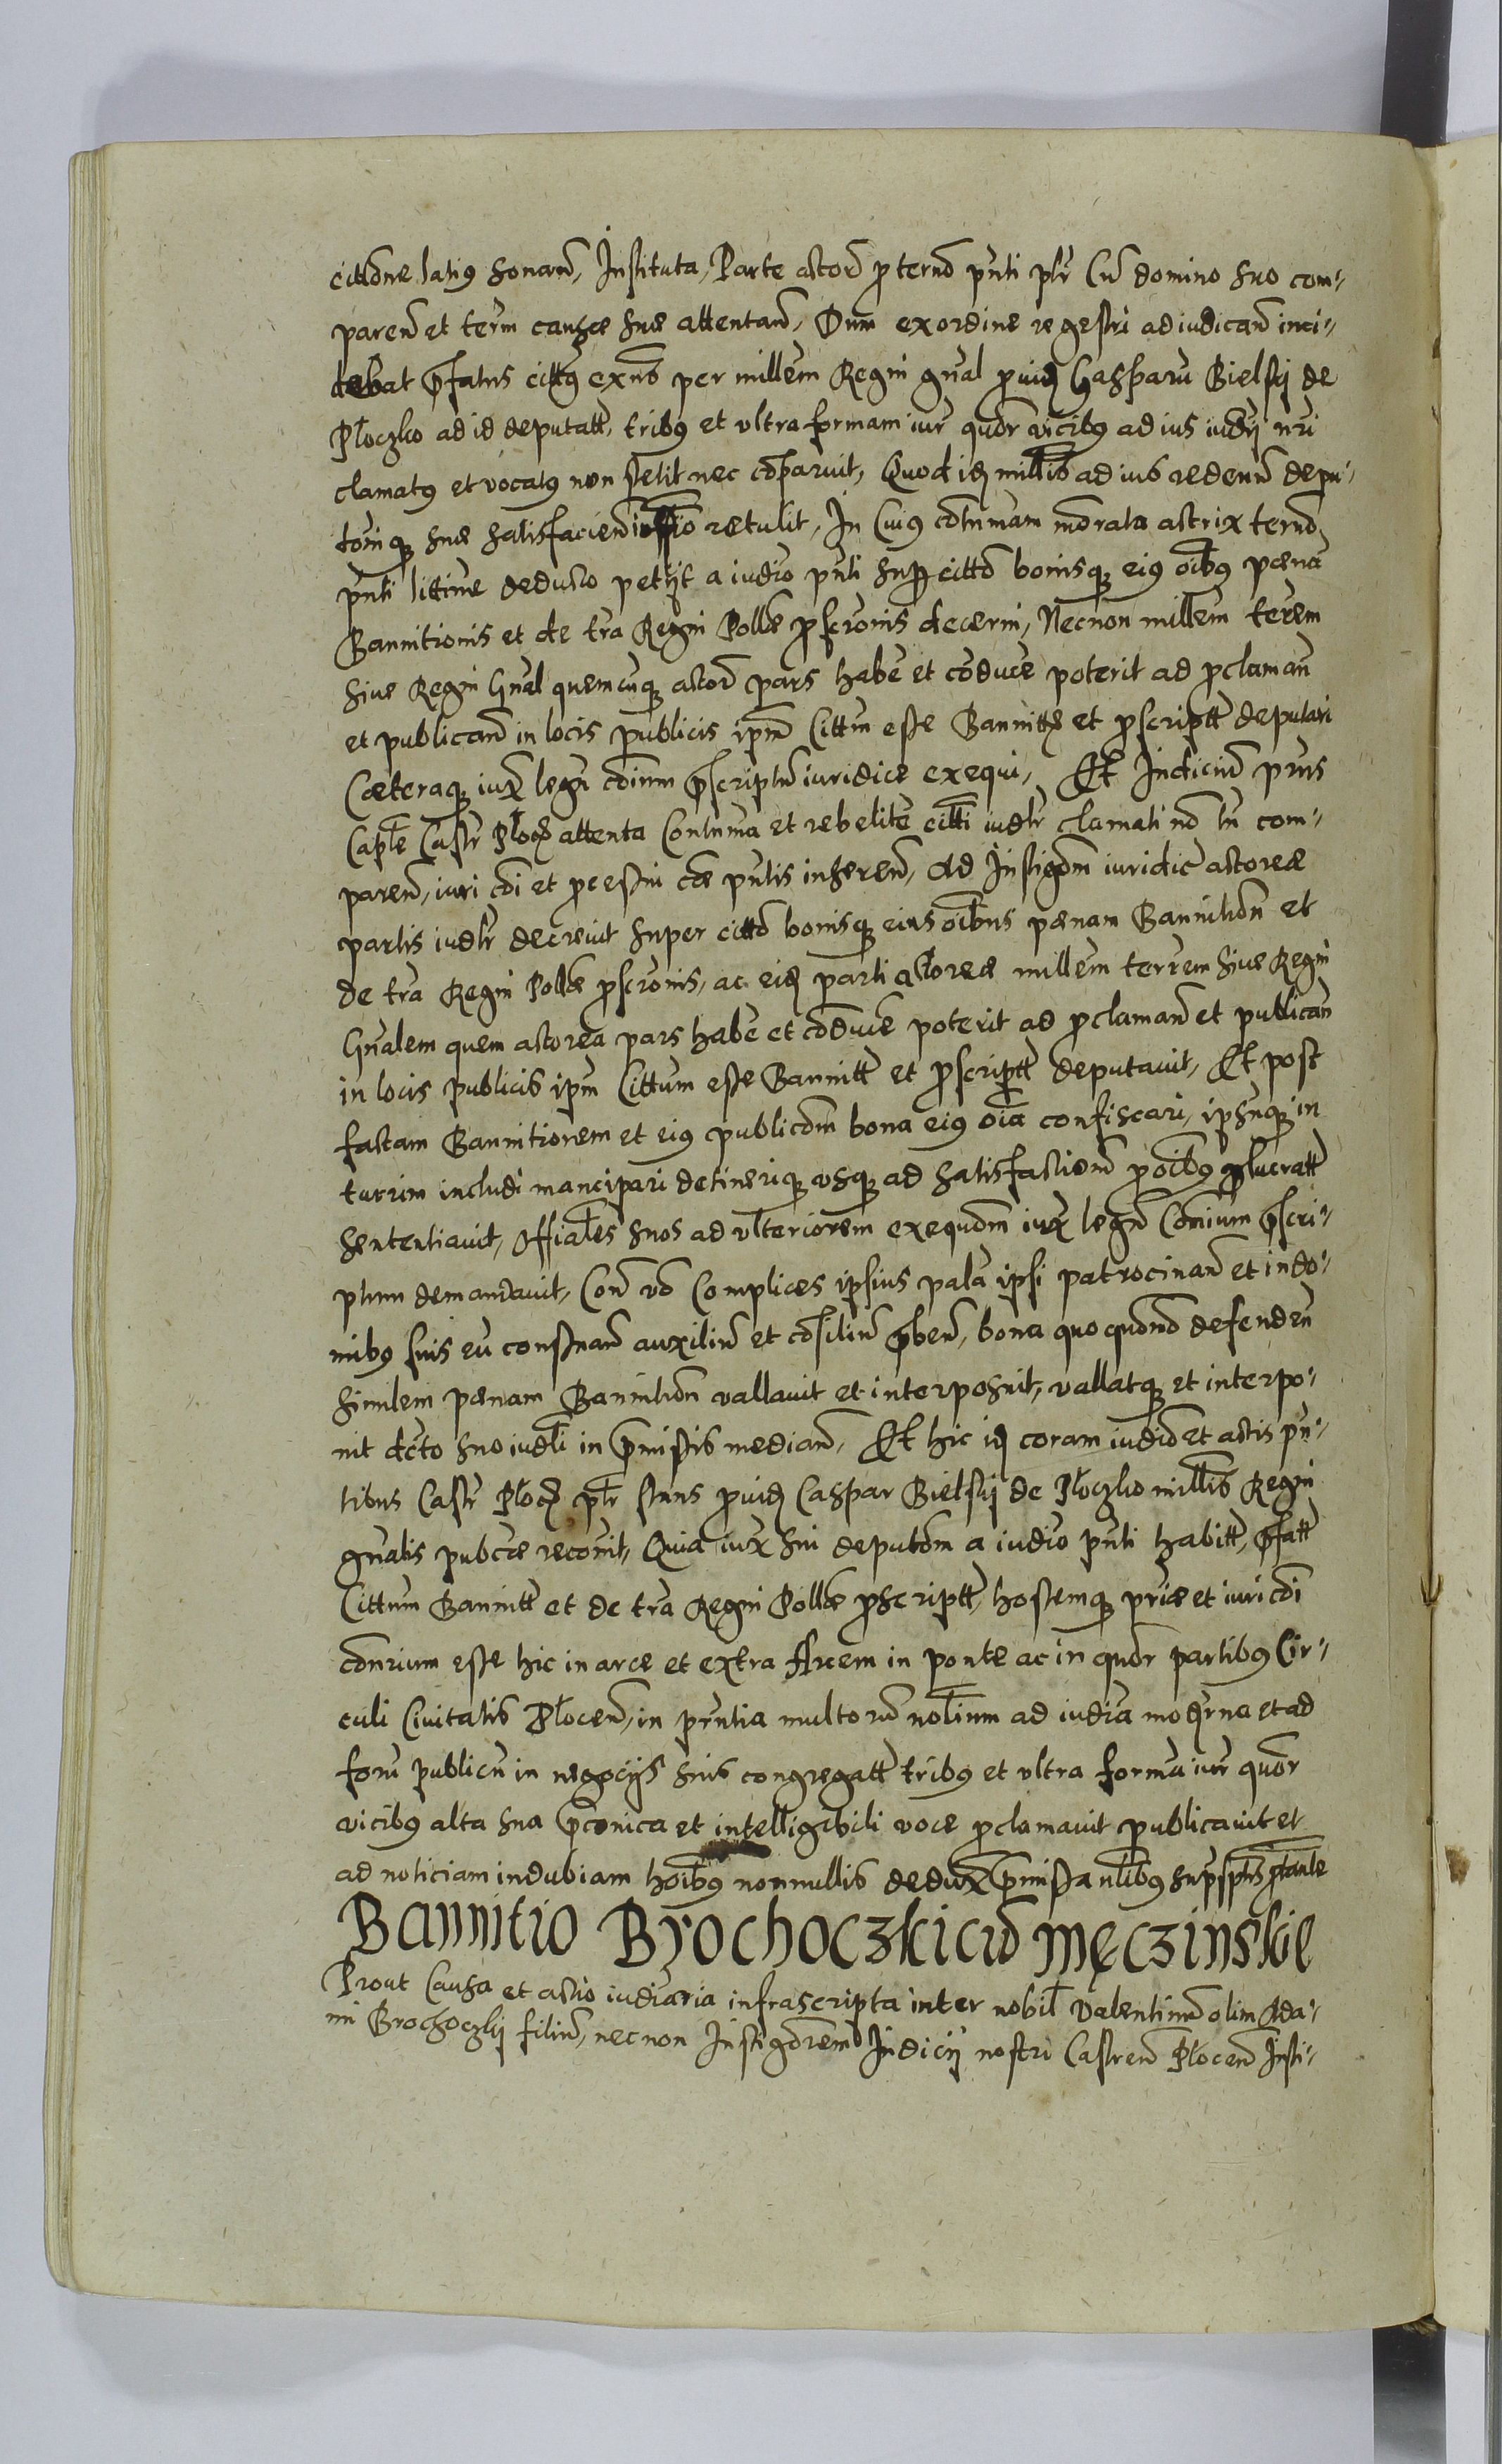 cittõne latiꝰ sonañ, Instituta, Parte actorẽ ꝓ termõ pñti ꝑlr Cũ domino suo com-
pareñ et term̃ causæ suæ attentañ, Dum ex ordine regestri ad iudicañ inci-
debat p̃fatus cittꝰ exñs per millem̃ Regni gñal ꝓuid Gasparũ Bielsỹ de
Płoczko ad id deputatt̃, tribꝰ et vltra formam iur̃ quõr vicibꝰ ad ius iudỹ nr̃i
clamatꝰ et vocatꝰ non stetit nec cõparuit, Quod id millis̃ ad ius reddenũ depu-
tõniq suæ satisfacieñ iudicio retulit, In Cuiꝰ cõtumam morata actrix termõ
pñti littime deducto petijt a iudio pñti sup cittõ bonisq eiꝰ oĩbꝰ pænã
Bannitionis et de tr̃a Regni Pollæ ꝓscrõnis decerni, Necnon millem̃ terem̃
siue Regni Gñal quemcunq actorẽ pars habẽ et cõducẽ poterit ad ꝓclamañ
et publicañ in locis publicis ipm̃ Cittm̃ esse Bannitt̃ et ꝓscriptt̃ deputari
Cæteraq iux̃ legũ cõium p̃scriptũ iuridice exequi, Et Iudiciũ pñs
Caplẽ Castr̃ Płoc̃ attenta Contuma et rebelitẽ citti iudlr̃ clamati nõ tñ com-
pareñ, iuri cõi et ꝓcessui cæ pñtis inhereñ, Ad Instigõm iuridic̃ actoreæ
partis iudlr̃ decreuit super cittõ bonisq eius oĩbus pænam Bannitiõn et
de tr̃a Regni Pollæ ꝓscrõnis, ac eid parti actoreæ millem̃ terrem̃ siue Regni
Gñalem quem actorea pars habẽ et cõducẽ poterit ad ꝓclamañ et publicañ
in locis publicis ipm̃ Cittum esse Bannitt̃ et ꝓscriptt̃ deputauit, Et post
factam Bannitionem et eiꝰ publicõm bona eiꝰ oĩa confiscari, ipsũq in
turrim includi mancipari detineriq usq ad satisfactionẽ ꝓ oĩbꝰ ꝑlucratt̃
sententiauit, Officiales suos ad vlteriorem exequõm iux̃ legũ Cõmium p̃scri-
ptum demandauit, Coñ võ Complices ipsius palã ipsi patrocinañ et in do-
mibꝰ suis eũ conseruañ auxiliũ et cõsiliũ p̃beñ, bona quoquõmõ defendeñ
similem pænam Bannitiõn vallauit et interposuit, vallatq et interpo-
nit dc̃to suo iudli in p̃missis mediañ, Et hic id coram iudiõ et actis pñ-
tibus Castr̃ Płoc̃ ꝑlr stans ꝓuid Caspar Bielsỹ de Płoczko millis̃ Regni
gñalis pubcæ recõuit, Quia iux̃ sui deputõm a iudio pñti habitt̃, p̃fatt̃
Cittum Bannitt̃ et de tr̃a Regni Pollæ ꝓscriptt̃, hostemq pr̃iæ et iuri cõi
cõnrium esse hic in arce et extra Arcem in ponte ac in quõr partibꝰ Cir-
culi Ciuitatis Płoceñ, in pr̃ntia multorũ nolium ad iudia moderna et ad
forũ publicũ in negocijs suis congregatt̃ tribꝰ et vltra formã iur̃ quõr
vicibꝰ alta sua p̃conica et intelligibili voce ꝓclamauit publicauit et
ad noticiam indubiam hoĩbꝰ nonnullis dedux̃ p̃missa
Bannitio Brochoczki cũ Męczinskie
Prout Causa et actio iudiaria infrascripta inter nobil̃ Valentinũ olim Ada-
mi Brochoczky filiũ, necnon Instigõrem Iudicij nostri Castreñ Płoceñ Insti-